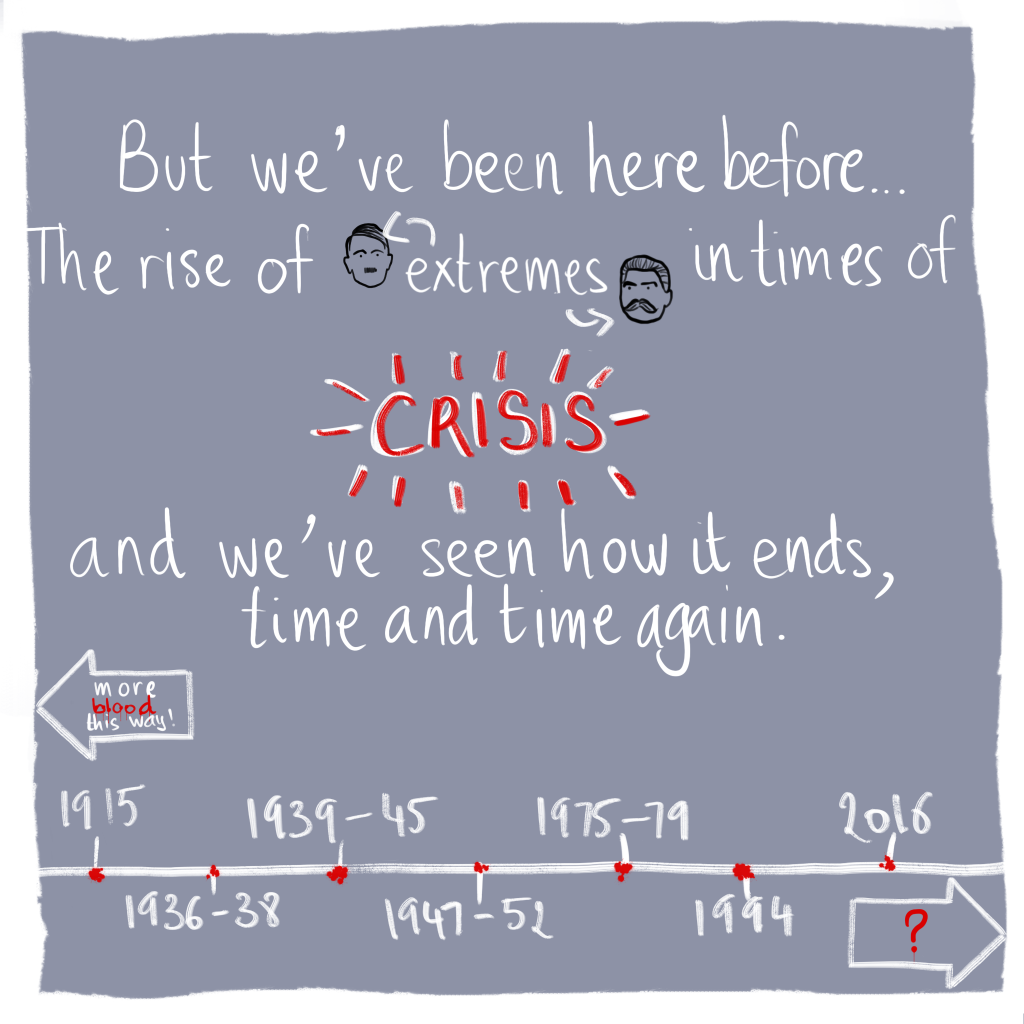 But we've been here before...
The rise of extremes in times of
CRISIS
and we've seen how it ends,
time and time again.
more
blood
this way!
1915
1939-45
1975-79
2016
1936-38
1947-52
1994
?